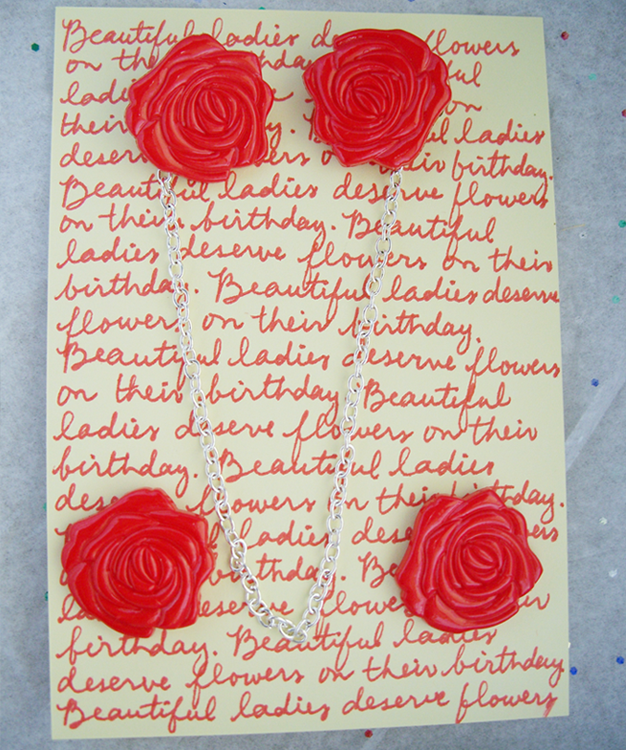 Beautiful ladies flowers
on
on
their ladies
birthday.
Beautiful ladies deserve flowers
on their birthday. Beautiful
ladies deserve flowers on their
birthday. Beautiful ladies deserve
flowers on their birthday.
Beautiful ladies deserve flowers
on their birthday Beautiful
ladies deserve flowers on their
birthday. Beautiful ladies
flowers on their birthday.
ladies
birthday. Beautiful ladies
deserve flowers on their birthday.
Beautiful ladies deserve flowers